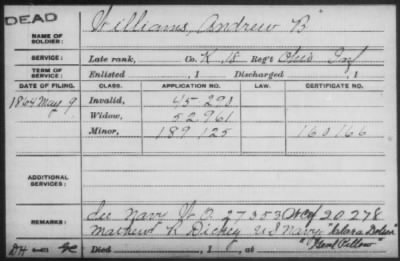 DEAD
NAME OF SOLDIER: Williams, Andrew B
SERVICE: Late rank, Co. K 18 Reg't Ohio Inf
TERM OF SERVICE: Enlisted , 1 Discharged , 1
DATE OF FILING. CLASS. APPLICATION NO. LAW. CERTIFICATE NO.
1864 May 9 Invalid, 45 290
Widow, 52961
Minor, 189 125 160166
ADDITIONAL SERVICES:
REMARKS: See Navy W.O. 27353 20278
Mathew R Dickey U S Navy "Clara Dolsen"
Died , 1 8 , at "